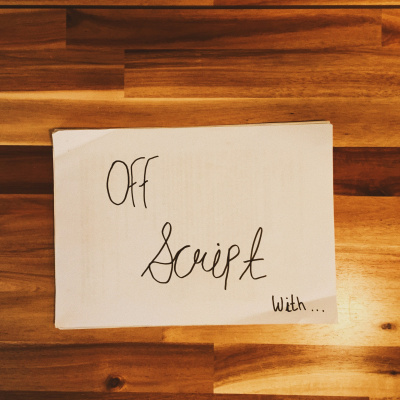 Off
Script
With...